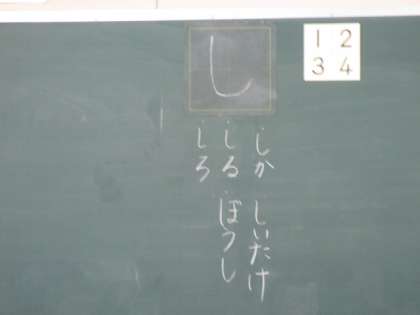 し
1 2
3 4
しか しいたけ
しる ぼうし
しろ